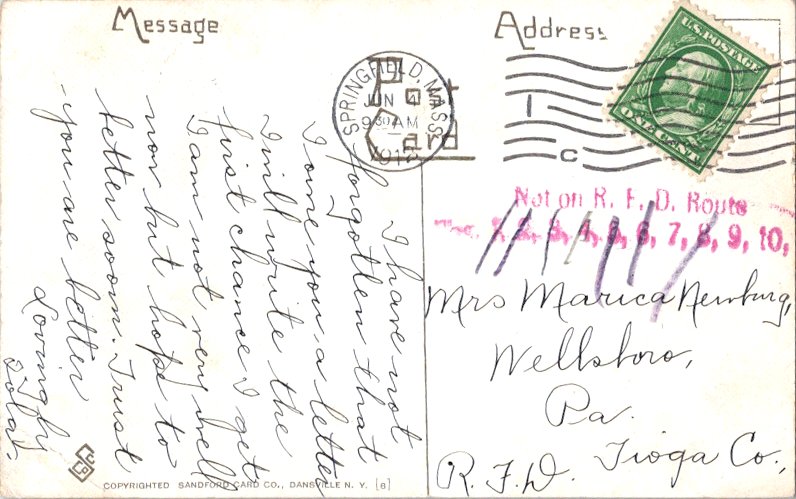 Message
Address
Post
Card
SPRINGFIELD, MASS.
JUN
9 30 AM
U.S. POSTAGE
ONE CENT
1
C
Not on R. F. D. Route
1, 2, 3, 4, 5, 6, 7, 8, 9, 10,
I have not
forgotten that
I owe you a letter
I will write the
first chance I get
I am not very well
now but hope to
better soon. Trust
you are better
Lovingly
Iola.
Mrs Marica Newburg,
Wellsboro,
Pa.
R.F.D. Tioga Co.,
COPYRIGHTED SANDFORD CARD CO., DANSVILLE N. Y. (8)